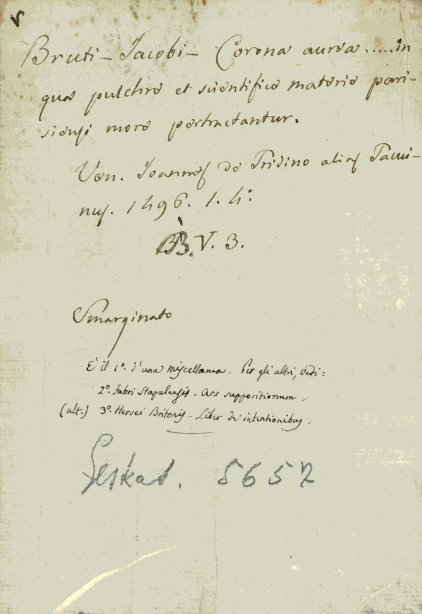 Bruti - Jacobi - Corona aurea ..... in
qua pulchre et scientifice materie pari-
siensi more pertractantur.
Ven. Joannes de Tridino alias Tacui-
nus. 1496. 1. 4°:
B. V. 3.
Smarginato
È il 1°. d'una miscellanea. Per gli altri, vedi:
2°. Fabri Stapulensis - Ars suppositionum.
(alt.) 3°. Hervei Britonis - Liber de intentionibus.
Geskat. 5657